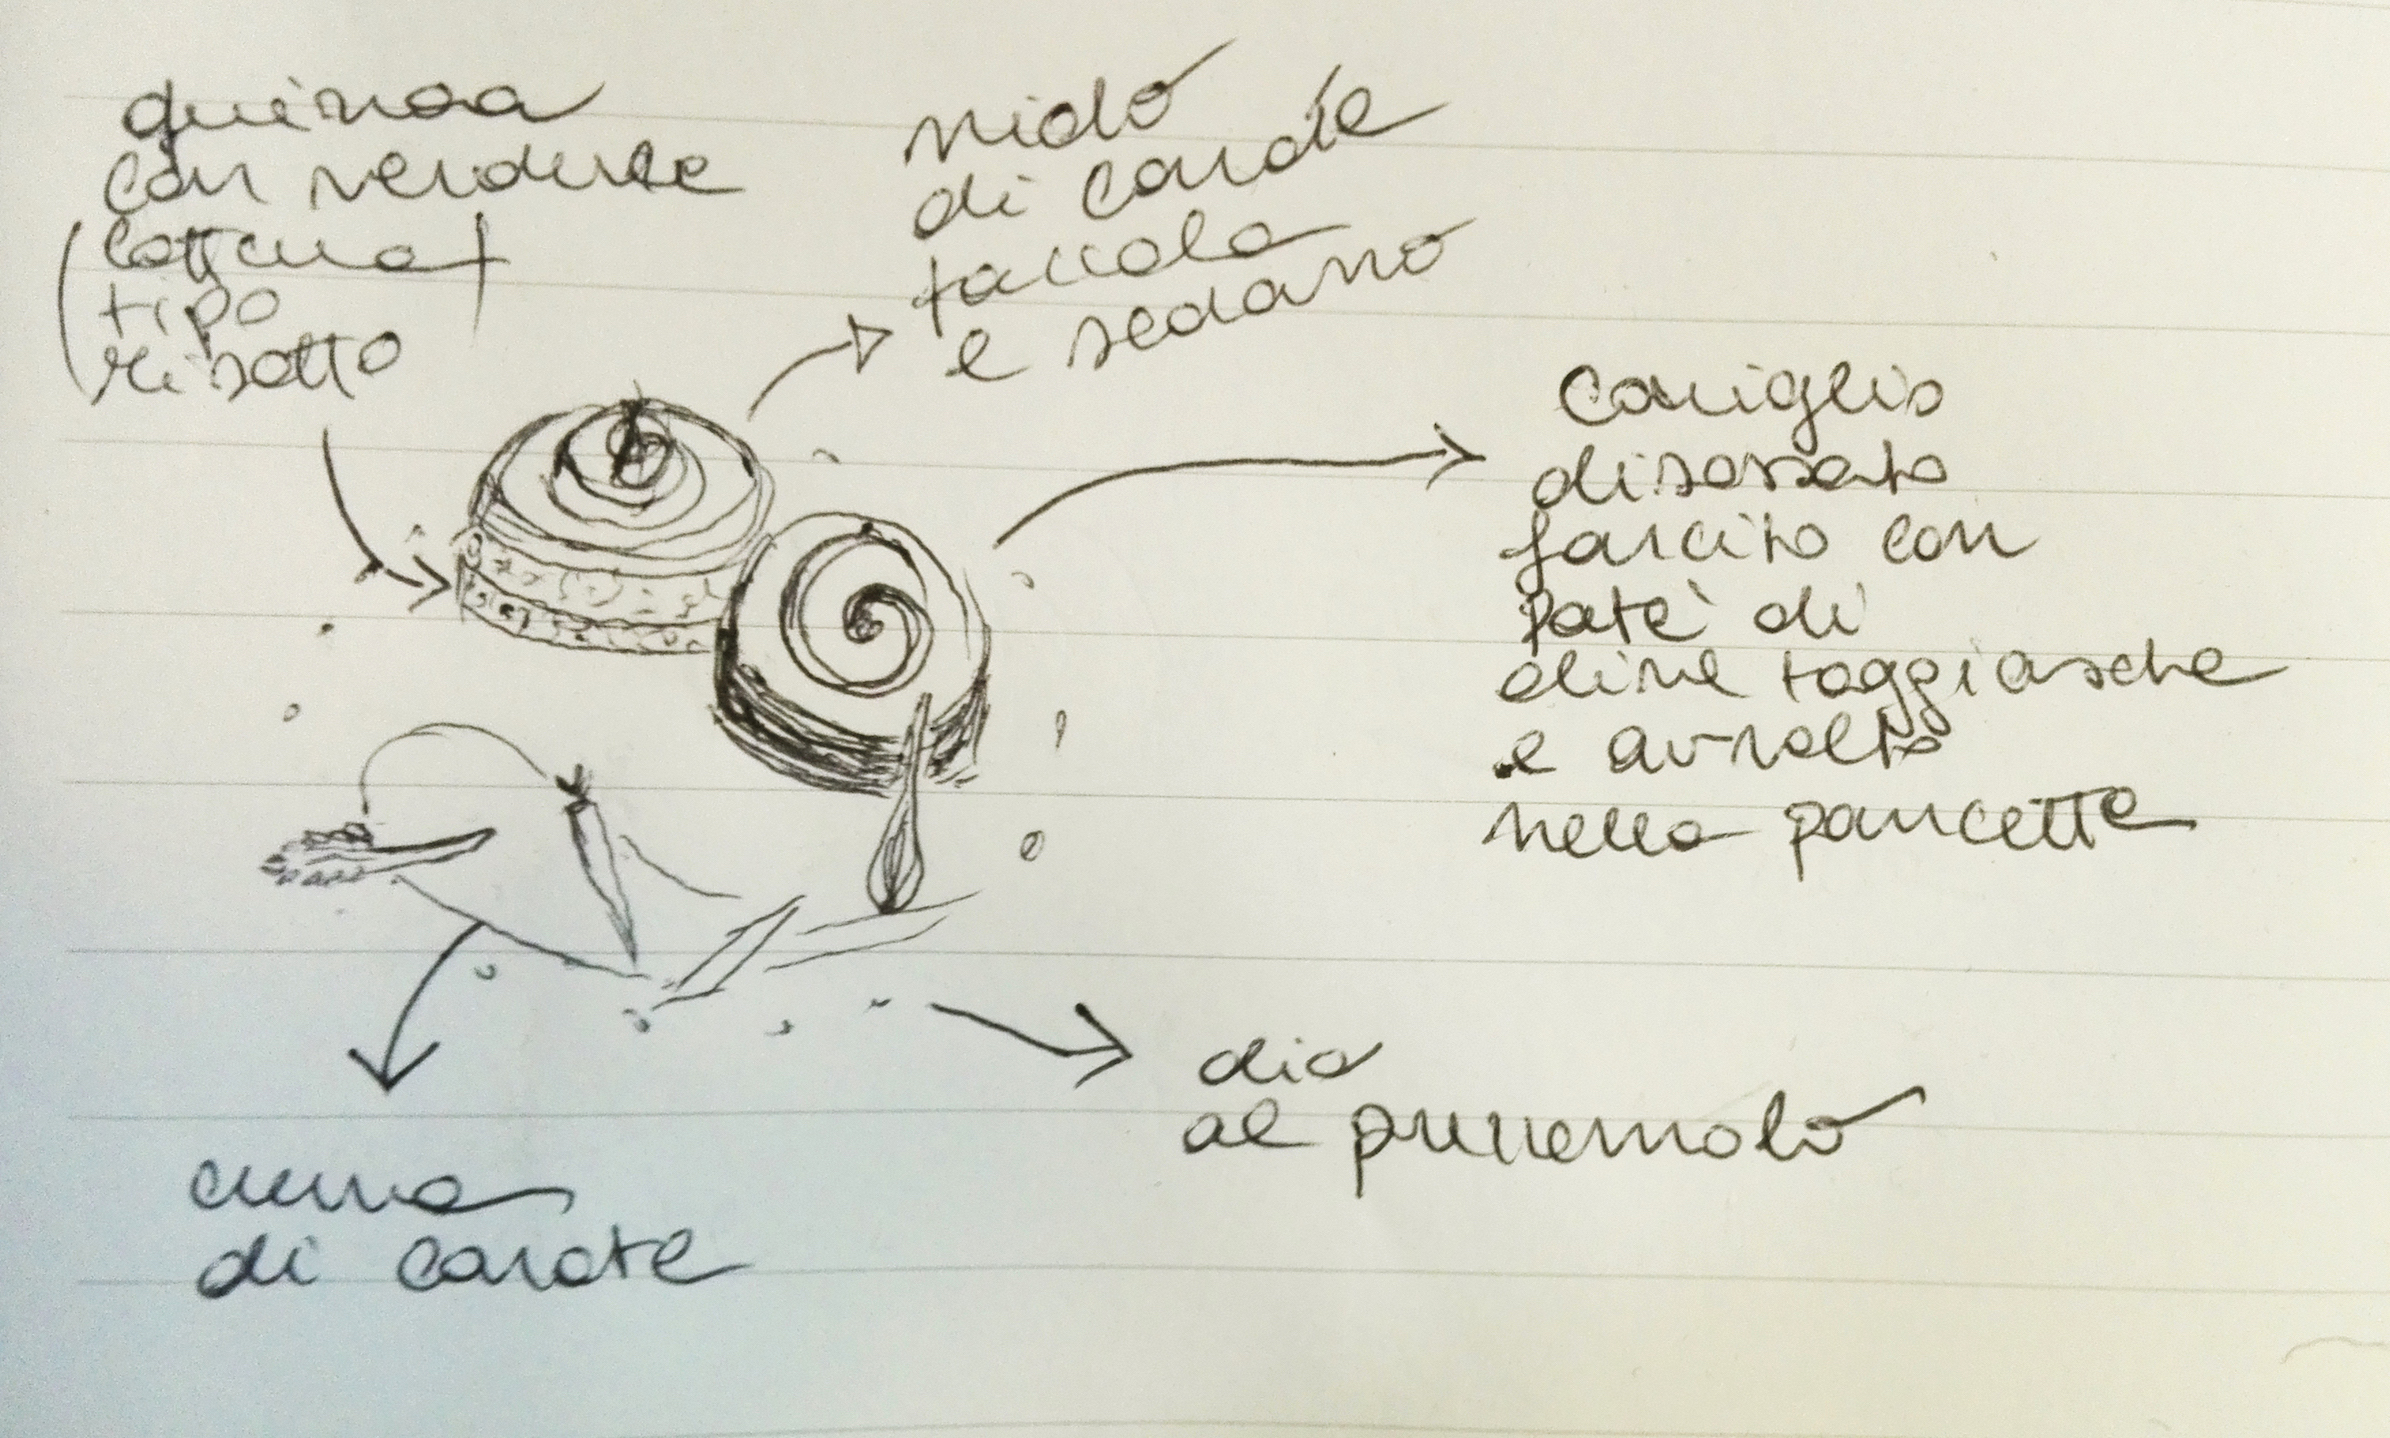 quinoa
con verdure
(cottura
tipo
risotto)
nido
di carote
taccola
e sedano
Coniglio
disossato
farcito con
patè di
olive taggiasche
e avvolto
nella pancetta
olio
al prezzemolo
crema
di carote